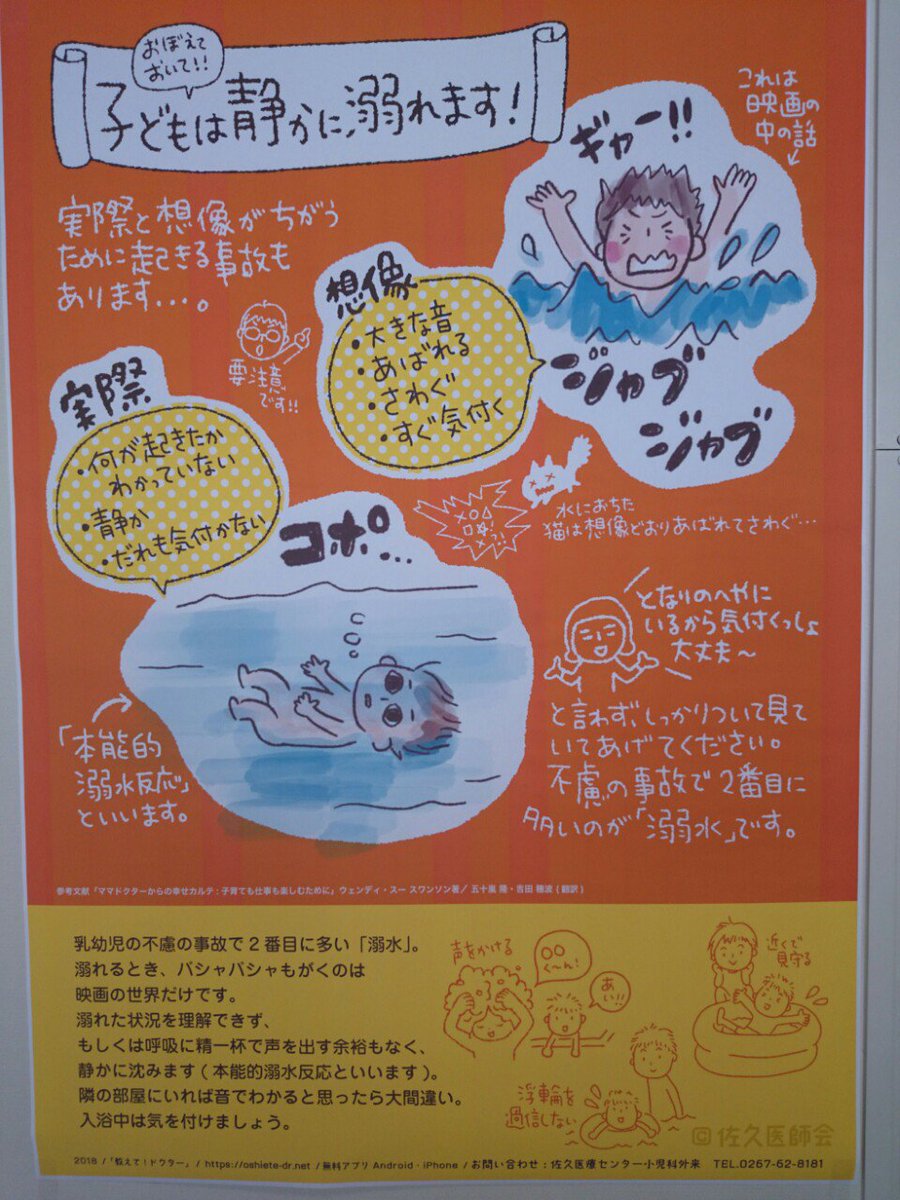 おぼえて
おいて!!
子どもは静かに溺れます!
これは
映画の
中の話
ギャー!!
実際と想像がちがう
ために起きる事故も
あります…。
要注意
です!!
想像
・大きな音
・あばれる
・さわぐ
・すぐ気付く
ジャブ
ジャブ
実際
・何が起きたか
わかっていない
・静か
・だれも気付かない
コポ…
水におちた
猫は想像どおりあばれてさわぐ…
となりのへやに
いるから気付くっしょ
大丈夫〜
と言わず、しっかりついて見て
いてあげてください。
不慮の事故で2番目に
多いのが「溺水」です。
「本能的
溺水反応」
といいます。
参考文献「ママドクターからの幸せカルテ:子育ても仕事も楽しむために」ウェンディ・スー スワンソン著/ 五十嵐 隆・吉田 穂波(翻訳)
乳幼児の不慮の事故で2番目に多い「溺水」。
溺れるとき、バシャバシャもがくのは
映画の世界だけです。
溺れた状況を理解できず、
もしくは呼吸に精一杯で声を出す余裕もなく、
静かに沈みます(本能的溺水反応といいます)。
隣の部屋にいれば音でわかると思ったら大間違い。
入浴中は気を付けましょう。
声をかける
○○
く〜ん!
あい!!
近くで
見守る
浮輪を
過信しない
© 佐久医師会
2018 /「教えて!ドクター」/ https://oshiete-dr.net /無料アプリ Android・iPhone / お問い合わせ:佐久医療センター小児科外来 TEL.0267-62-8181